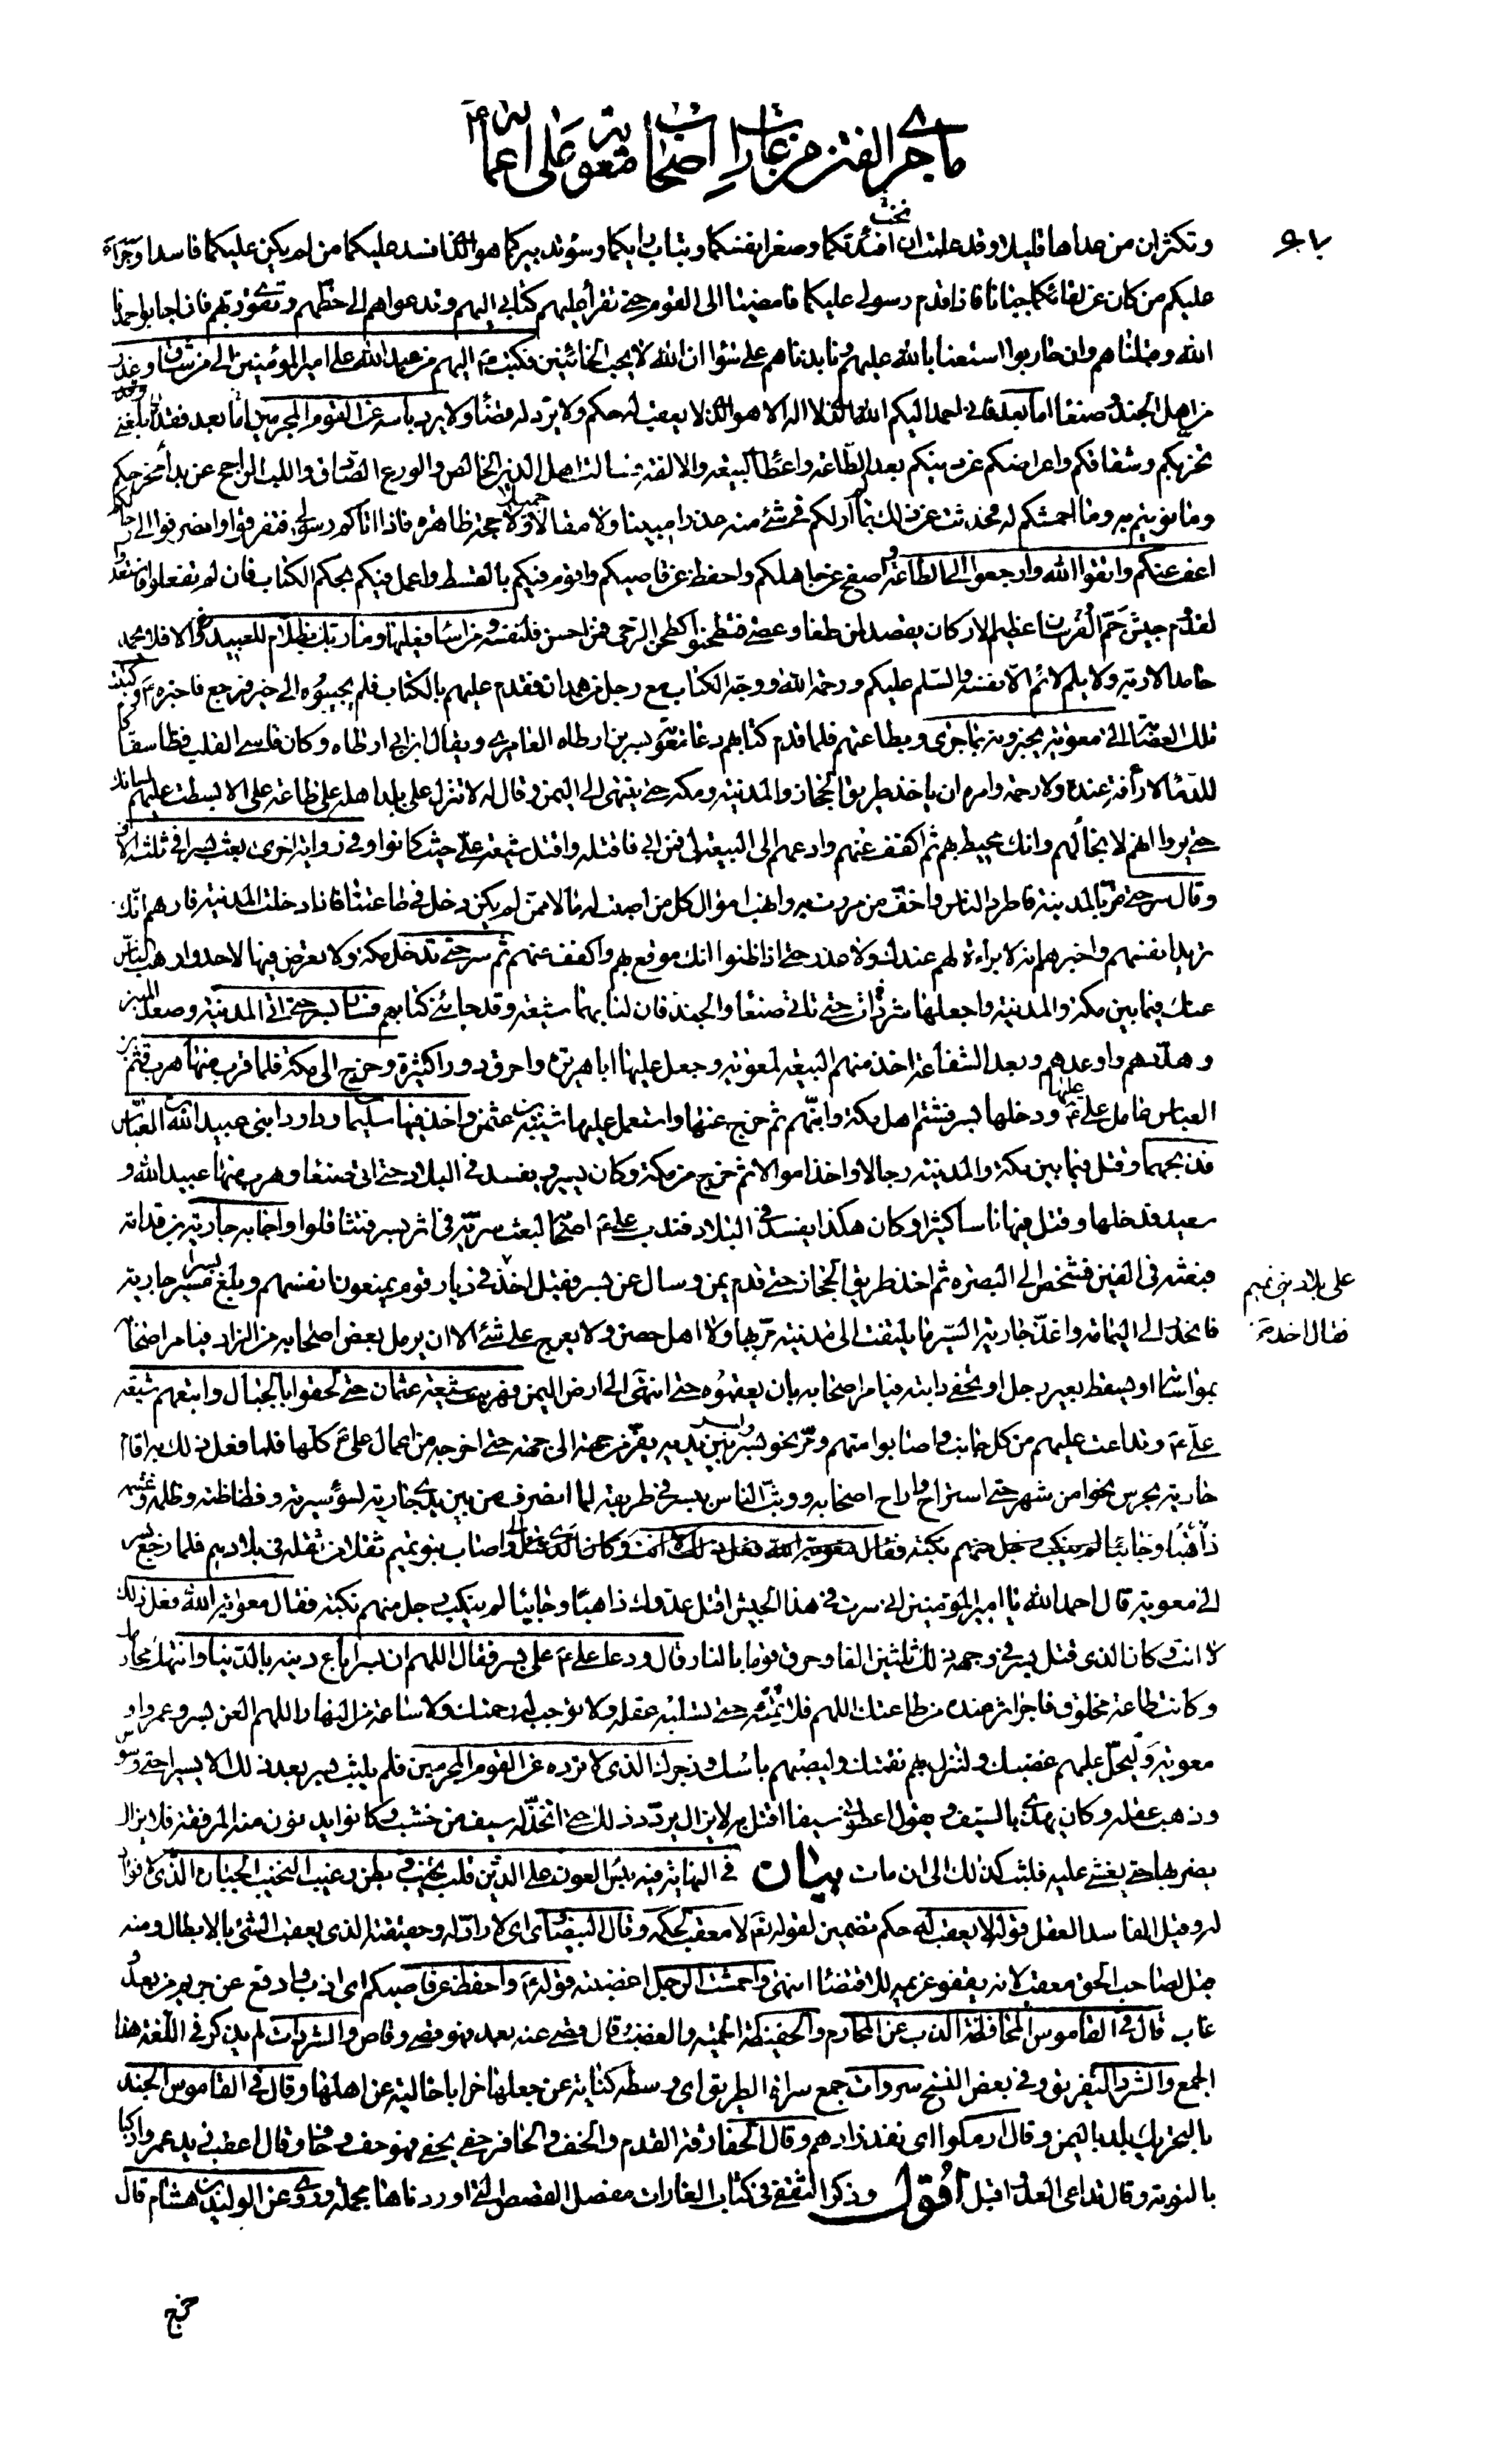 ما جرى من الفتن من غارات اصحاب معوية على اعماله ع
وتكثران من عددها قليلا وقد علمت ان نخب افئدتكما وصغر انفسكما وتباب رايكما وسوء تدبيركما هو الذى افسد عليكما من لم يكن عليكما فاسدا وجرّاء
عليكم من كان عن لقائكما جبانا فاذا قدم رسولى عليكما فامضيا الى القوم حتى تقرأ عليهم كتابى اليهم وتدعواهم الى حظهم وتقوى ربهم فان اجابوا حمدنا
الله وقبلناهم وان حاربوا استعنا بالله عليهم ونابذناهم على سواء ان الله لا يحب الخائنين فكتب ع اليهم من عبد الله على امير المؤمنين الى من شاق وغدر
من اهل الجند وصنعا اما بعد فانى احمد اليكم الله الذى لا اله الا هو الذى لا يعقب له حكم ولا يرد له قضاء ولا يرد باسه عن القوم المجرمين اما بعد فقد بلغنى
تحزبكم وشقاقكم واعراضكم عن دينكم بعد الطاعة واعطاء البيعة والالفة فسالت اهل الدين الخالص والورع الصادق واللب الراجح عن بدء مخرجكم
وما نويتم به وما احمشكم له فحدثت عن ذلك بما لم ار لكم فى شئ منه عذرا مبينا ولا مقالا جميلا ولا حجة ظاهرة فاذا اتاكم رسولى فتفرقوا وانصرفوا الى رحالكم
اعف عنكم واتقوا الله وارجعوا الى الطاعة اصفح عن جاهلكم واحفظ عن قاصيكم واقوم فيكم بالقسط واعمل فيكم بحكم الكتاب فان لم تفعلوا فاستعدوا
لقدوم جيش جمّ الفرسان عظيم الاركان يقصد لمن طغا وعصى فتطحنوا كطحن الرحى فمن احسن فلنفسه ومن اساء فعليها وما ربك بظلام للعبيد الا فلا يحمد
حامد الا ربه ولا يلم لائم الا نفسه والسلم عليكم ورحمة الله ووجه الكتاب مع رجل من همدان فقدم عليهم بالكتاب فلم يجيبوه الى خير فرجع فاخبره ع وكتبت
تلك العصابة الى معوية يخبرونه بما جرى وبطاعتهم فلما قدم كتابهم دعا معوية بسر بن ارطاه العامرى ويقال ابن ابى ارطاه وكان قاسى القلب فظا سفاكا
للدماء لا رأفة عنده ولا رحمة وامره ان ياخذ طريق الحجاز والمدينة ومكة حتى ينتهى الى اليمن وقال له لا تنزل على بلد اهله على طاعة على الا بسطت عليهم لسانك
حتى يروا انهم لا نجاء لهم وانك محيط بهم ثم اكفف عنهم وادعهم الى البيعة لى فمن ابى فاقتله واقتل شيعة على حيث كانوا وفى رواية اخرى بعث بسرا فى ثلثة الاف
وقال سر حتى تمر بالمدينة فاطرد الناس واخف من مررت به وانهب اموال كل من اصبت له مالا ممن لم يكن دخل فى طاعتنا فاذا دخلت المدينة فارهم انك
تريد انفسهم واخبرهم انه لا براءة لهم عندك ولا عذر حتى اذا ظنوا انك موقع بهم فاكفف عنهم ثم سر حتى تدخل مكة ولا تعرض فيها لاحد وارهب الناس
عنك فيما بين مكة والمدينة واجعلها شردات حتى تاتى صنعا والجند فان لنا بهما شيعة وقد جاءنى كتابهم فسار بسر حتى اتى المدينة وصعد المنبر
وهددهم واوعدهم وبعد الشفاعة اخذ منهم البيعة لمعوية وجعل عليها ابا هريرة واحرق دورا كثيرة وخرج الى مكة فلما قرب منها هرب قثم بن
العباس عامل على ع عليها ودخلها بسر فشتم اهل مكة وانبهم ثم خرج عنها واستعمل عليها شيبة بن عثمن واخذ فيها سليمان وداود ابنى عبيد الله بن العباس
فذبحهما وقتل فيما بين مكة والمدينة رجالا واخذ اموالا ثم خرج من مكة وكان يسير ويفسد فى البلاد حتى اتى صنعا وهرب منها عبيد الله و
سعيد فدخلها وقتل فيها ناسا كثيرا وكان هكذا يفسد فى البلاد فندب على ع اصحابه لبعث سرية فى اثر بسر فتثاقلوا واجابه جارية بن قدامة
فبعثه فى الفين فشخص الى البصره ثم اخذ طريق الحجاز حتى قدم يمن وسال عن بسر فقيل اخذ فى ديار قوم يمنعون انفسهم وبلغ بسرا مسير جارية
على بلاد بنى تميم
فقال اخذ
فانحدر الى اليمامة واغذ جارية السير ما يلتفت الى مدينة مر بها ولا اهل حصن ولا يعرج على شئ الا ان يرمل بعض اصحابه من الزاد فيامر اصحابه
بمواساته او يسقط بعير رجل او تحفى دابته فيامر اصحابه بان يعقبوه حتى انتهى الى ارض اليمن فهربت شيعة عثمان حتى لحقوا بالجبال واتبعهم شيعة
على ع وتداعت عليهم من كل جانب واصابوا منهم ومر نحو بسر وبسر بين يديه يفر من جهة الى جهة حتى اخرجه من اعمال على ع كلها فلما فعل ذلك به اقام
جارية بجرس نحوا من شهر حتى استراح واراح اصحابه ووثب الناس ببسر فى طريقه لما انصرف من بين يدى جارية لسوء سيرته وفظاظته وظلمه وغشمه
واصاب بنو تميم ثقلا من ثقله فى بلادهم فلما رجع بسر
الى معوية قال احمد الله يا امير المؤمنين انى سرت فى هذا الجيش اقتل عدوك ذاهبا وجائيا لم ينكب رجل منهم نكبة فقال معوية الله فعل ذلك
لا انت وكان الذى قتل بسر فى وجهه ذلك ثلثين الفا وحرق قوما بالنار قال ودعا على ع على بسر فقال اللهم ان بسرا باع دينه بالدنيا وانتهك محارمك
وكانت طاعة مخلوق فاجر اثر عنده من طاعتك اللهم فلا تمته حتى تسلبه عقله ولا توجب له رحمتك ولا ساعة من النهار اللهم العن بسر وعمروا و
معوية وليحل عليهم غضبك ولتنزل بهم نقمتك وليصبهم باسك وزجرك الذى لا ترده عن القوم المجرمين فلم يلبث بسر بعد ذلك الا يسيرا حتى وسوس
وذهب عقله وكان يهذى بالسيف ويقول اعطونى سيفا اقتل به لا يزال يردد ذلك حتى اتخذ له سيف من خشب وكانوا يدنون منه المرفقة فلا يزال
يضربها حتى يغشى عليه فلبث كذلك الى ان مات بيان فى النهاية فيه بئس العون على الدين قلب نخيب وبطن رغيب النخيب الجبان الذى لا فؤاد
له وقيل الفاسد العقل قوله لا يعقب له حكم تضمين لقوله تع لا معقب لحكمه وقال البيضاوى اى لا راد له وحقيقته الذى يعقب الشئ بالابطال ومنه
قيل لصاحب الحق معقب لانه يقفو غريمه للاقتضاء انتهى واحمشت الرجل اغضبته قوله ع واحفظ عن قاصيكم اى اذب وادفع عن حريم من بعد و
غاب قال فى القاموس المحافظة الذب عن المحارم والحفيظة الحمية والغضب قال قصى عنه بعد فهو قصى وقاص والشردات لم يذكر فى اللغة هذا
الجمع والشرد التفريق وفى بعض النسخ سروات جمع سراة الطريق اى وسطه كناية عن جعلها خرابا خالية عن اهلها وقال فى القاموس الجند
بالتحريك بلد باليمن وقال ارملوا اى نفد زادهم وقال الحفا رقة القدم والخف والحافر حفى يحفى فهو حف وحاف وقال اعقب زيد عمروا ركبا
بالنوبة وقال تداعى العدو اقبل اقول وذكر الثقفى فى كتاب الغارات مفصل القصص التى اوردناها مجملة وروى عن الوليد بن هشام قال
خرج